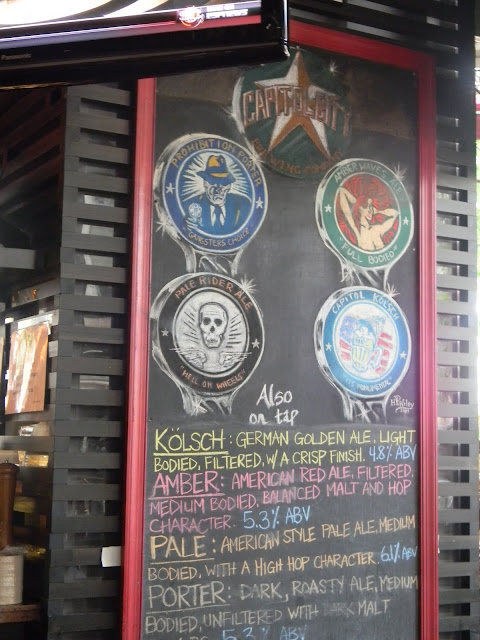 Panasonic
CAPITOL CITY
BREWING COMPANY
PROHIBITION PORTER
GANGSTERS CHOICE
AMBER WAVES ALE
"FULL BODIED"
PALE RIDER ALE
"HELL ON WHEELS"
CAPITOL KÖLSCH
"IT'S MONUMENTAL"
Also
on tap
KÖLSCH: GERMAN GOLDEN ALE, LIGHT
BODIED, FILTERED, W/A CRISP FINISH. 4.8% ABV
AMBER: AMERICAN RED ALE, FILTERED,
MEDIUM BODIED, BALANCED MALT AND HOP
CHARACTER. 5.3% ABV
PALE: AMERICAN STYLE PALE ALE, MEDIUM
BODIED, WITH A HIGH HOP CHARACTER. 6.1% ABV
PORTER: DARK, ROASTY ALE, MEDIUM
BODIED, UNFILTERED WITH DARK MALT
5.3% ABV